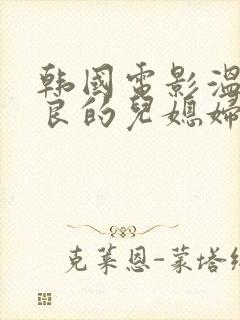 韩国电影温
良的儿媳妇
克莱恩-蒙塔纳